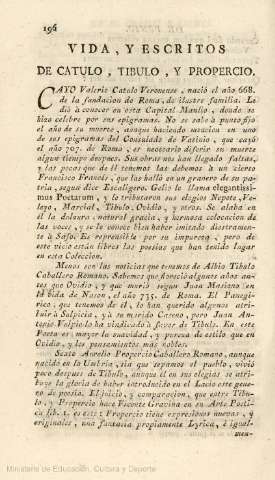 196
VIDA, Y ESCRITOS
DE CATULO, TIBULO, Y PROPERCIO.
CAYO Valerio Catulo Veronense, nació el año 668.
de la fundacion de Roma, de ilustre familia. La
dió à conocer en esta Capital Manlio, donde se
hizo celebre por sus epigramas. No se sabe à punto fijo
el año de su muerte, aunque haciendo mencion en uno
de sus epigramas del Consulado de Vatinio, que cayó
el año 707. de Roma, es necesario diferir su muerte
algun tiempo despues. Sus obras nos han llegado faltas,
y las pocas que de él tenemos las debemos à un cierto
Francisco Francés, que las halló en un granero de su pa-
tria, segun dice Escaligero. Gelio le llama elegantissi-
mus Poetarum, y le tributaron sus elogios Nepote, Ve-
leyo, Marcial, Tibulo, Ovidio, y otros. Se alaba en
él la dulzura, natural gracia, y hermosa colocacion de
las voces, y se le conoce bien haber imitado diestramen-
te à Safo. Es reprensible por su impureza; pero de
este vicio están libres las poesías que han tenido lugar
en esta Coleccion.
Menos son las noticias que tenemos de Albio Tibulo
Caballero Romano. Sabemos que floreció algunos años an-
tes que Ovidio, y que murió segun Juan Masiano en
la vida de Nason, el año 735. de Roma. El Panegi-
rico, que tenemos de él, le han querido algunos atri-
buir à Sulpicia, y à su marido Caleno, pero Juan An-
tonio Vulpio lo ha vindicado à favor de Tibulo. En este
Poeta es mayor la suavidad, y pureza de estilo que en
Ovidio, y los pensamientos mas nobles.
Sexto Aurelio Propercio Caballero Romano, aunque
nacido en la Umbria, sin que sepamos el pueblo, vivió
poco despues de Tibulo, aunque él en sus elegias se atri-
buye la gloria de haber introducido en el Lacio este gene-
ro de poesía. El juicio, y comparacion, que entre Tibu-
lo, y Propercio hace Vicente Gravina en su Arte Poéti-
ca lib. 1. es este: Propercio tiene expresiones nuevas, y
originales, una fantasia propiamente Lyrica, è igual-
men-
Ministerio de Educación, Cultura y Deporte